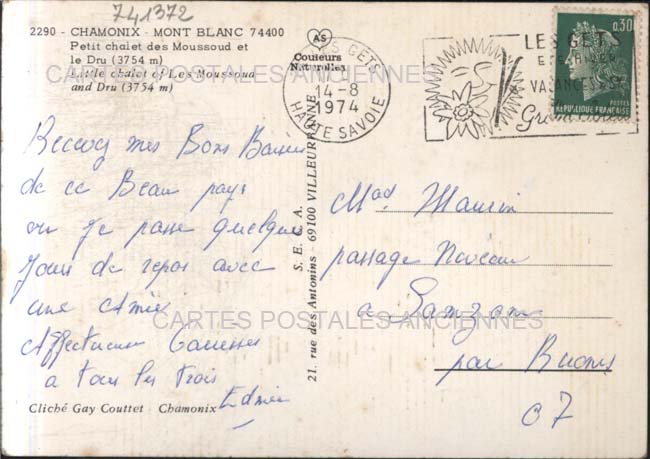 741372
2290 - CHAMONIX - MONT BLANC 74400
Petit chalet des Moussoud et
le Dru (3754 m)
Little chalet of Les Moussoud
and Dru (3754 m)
AS
Couleurs
Naturelles
LES GETS
14-8
1974
HAUTE SAVOIE
LES GETS
ETE HIVER
VACANCES
0,30
POSTES
REPUBLIQUE FRANÇAISE
CARTES POSTALES ANCIENNES
Recevez mes Bons Baisers
de ce Beau pays
ou je passe quelque
jours de repos avec
une Amie
Affectueuses Caresses
a tous les trois
Edmée
S. E. C. A.
21. rue des Antonins - 69100 VILLEURBANNE
Mad Maurin
passage Noveau
a Sanzon
par
07
CARTES POSTALES ANCIENNES
Cliché Gay Couttet - Chamonix